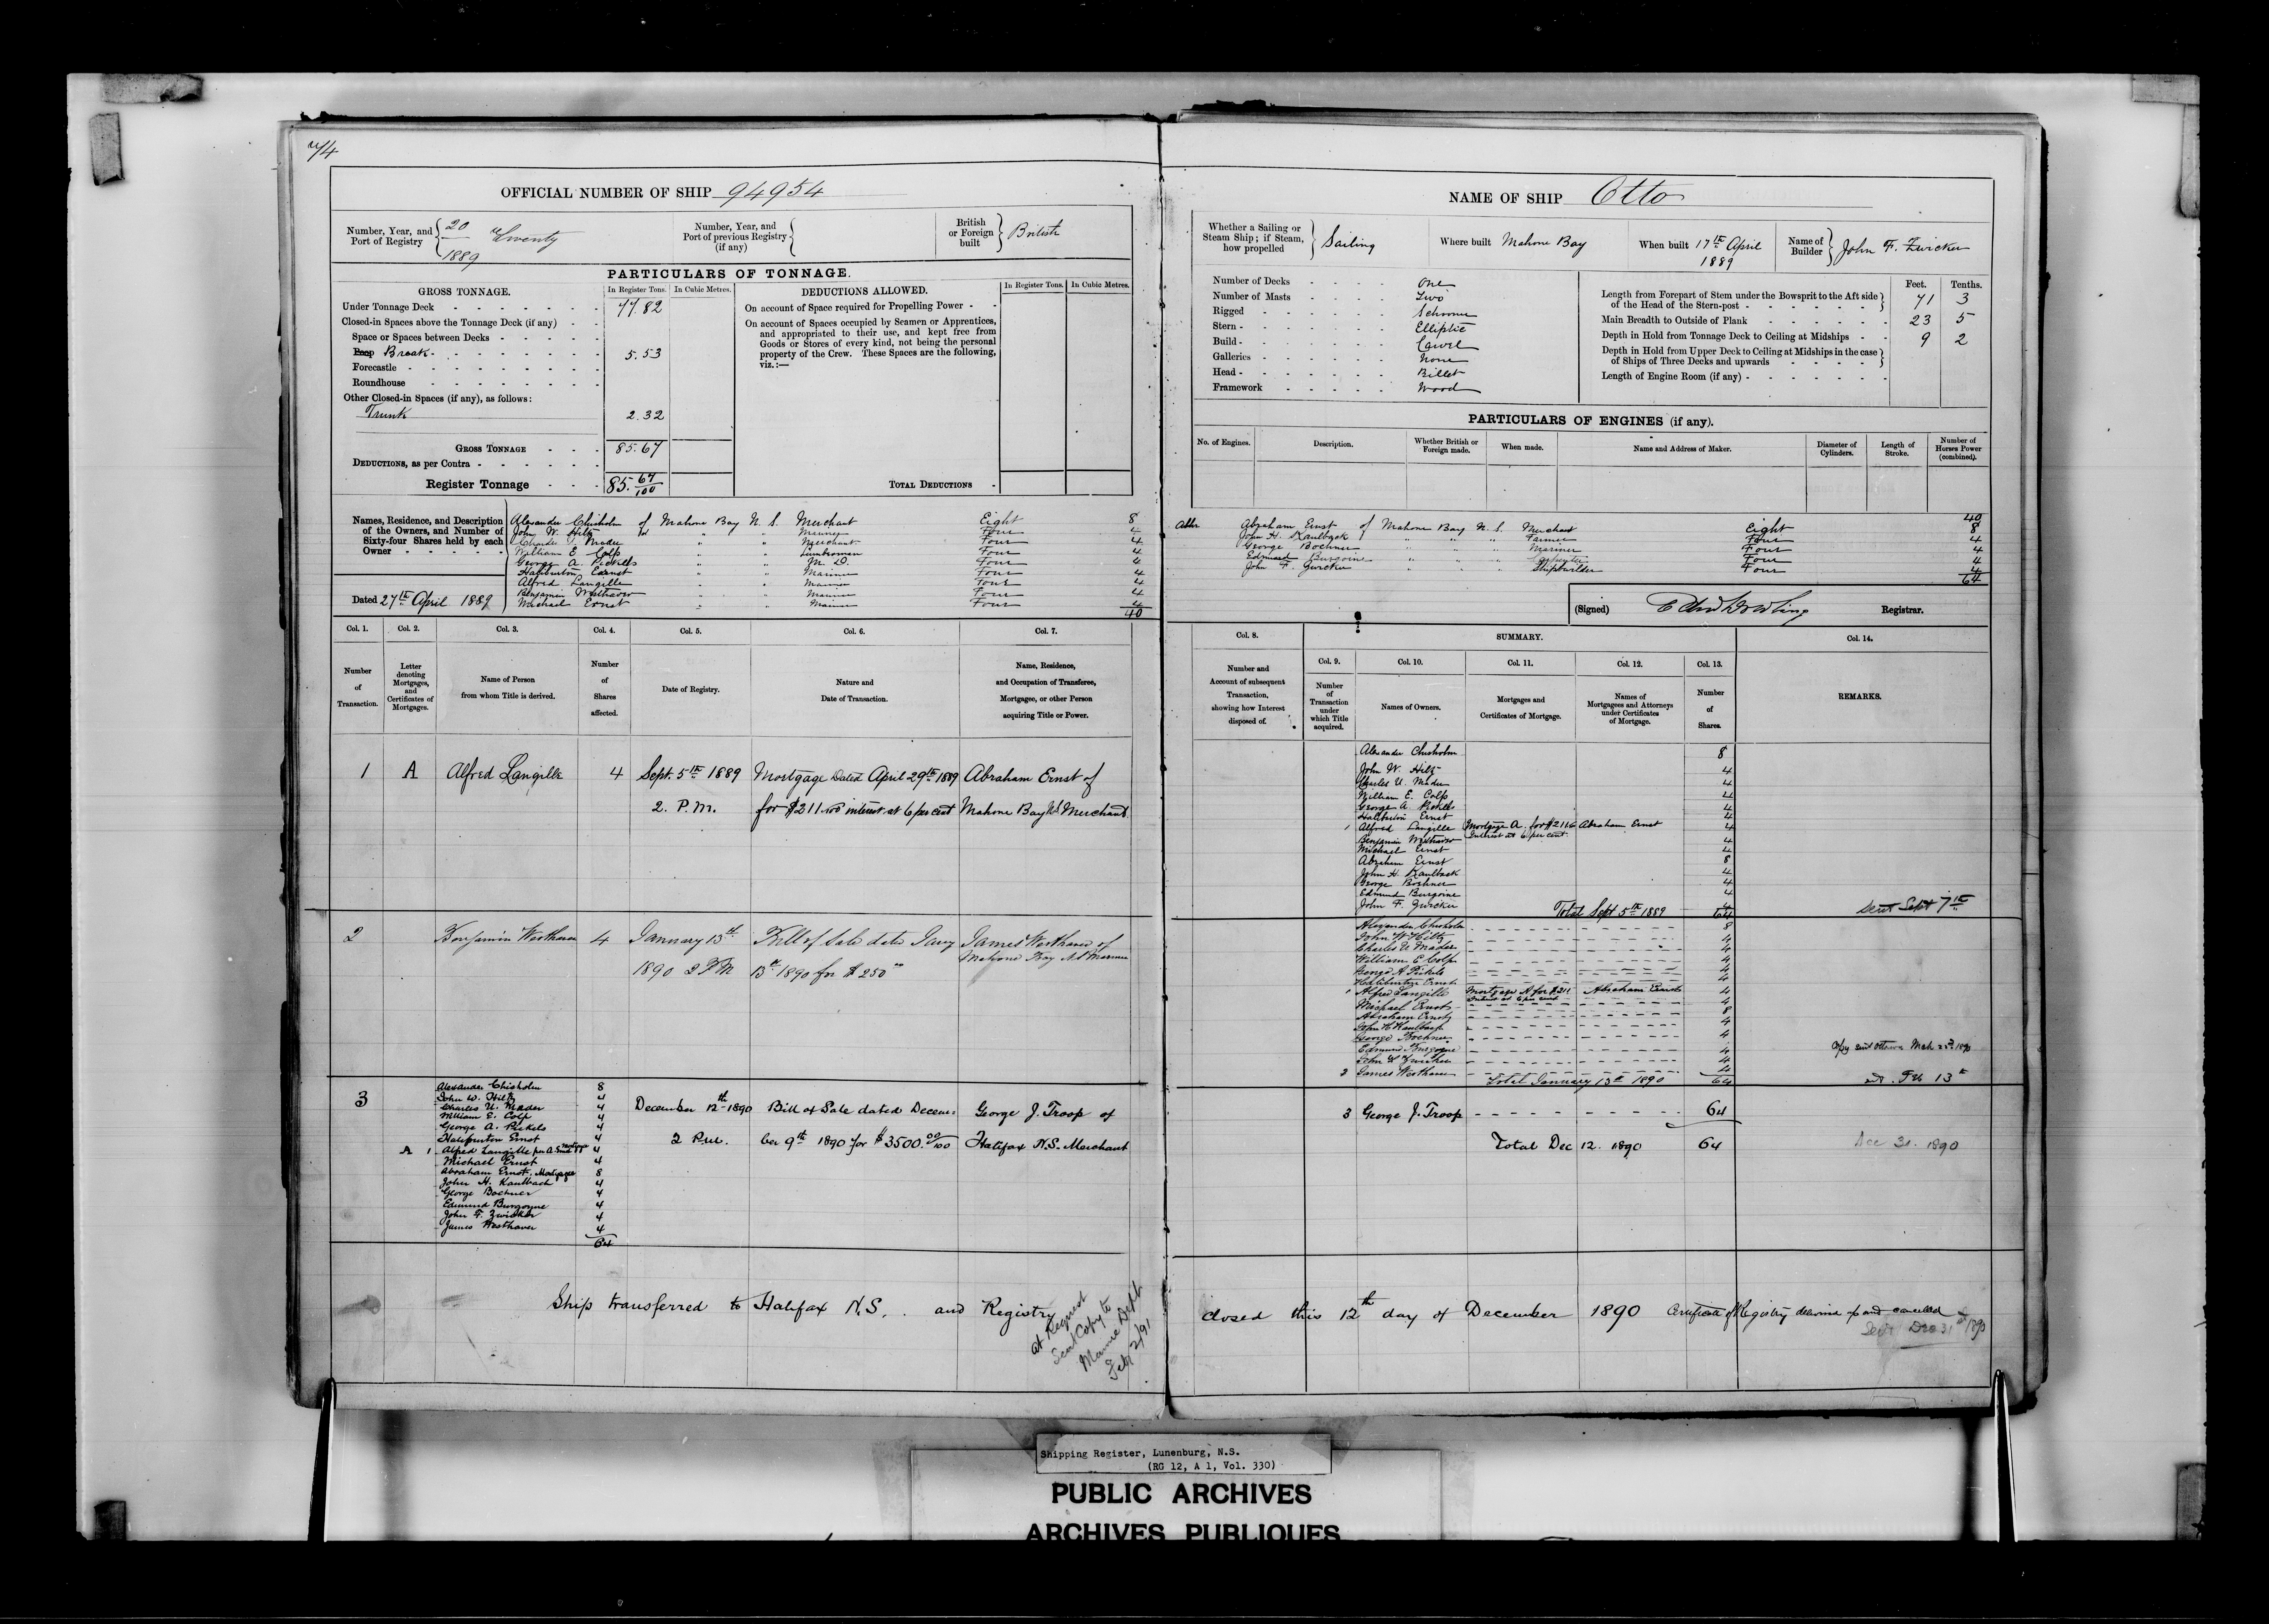 74
OFFICIAL NUMBER OF SHIP 94954
Number, Year, and Port of Registry 20 / 1889 Twenty
Number, Year, and Port of previous Registry (if any)
British or Foreign built British
PARTICULARS OF TONNAGE.
GROSS TONNAGE. In Register Tons. In Cubic Metres.
Under Tonnage Deck 77.82
Closed-in Spaces above the Tonnage Deck (if any)
Space or Spaces between Decks
Poop Break 5.53
Forecastle
Roundhouse
Other Closed-in Spaces (if any), as follows:
Trunk 2.32
GROSS TONNAGE 85.67
DEDUCTIONS, as per Contra
Register Tonnage 85. 67/100
DEDUCTIONS ALLOWED. In Register Tons. In Cubic Metres.
On account of Space required for Propelling Power
On account of Spaces occupied by Seamen or Apprentices,
and appropriated to their use, and kept free from
Goods or Stores of every kind, not being the personal
property of the Crew. These Spaces are the following,
viz.:—
TOTAL DEDUCTIONS
Names, Residence, and Description
of the Owners, and Number of
Sixty-four Shares held by each
Owner
Alexander Chisholm of Mahone Bay N. S. Merchant Eight 8
John W. Hiltz " " Mariner Four 4
Charles U. Mader " " Merchant Four 4
William E. Colp " " Lumberman Four 4
George A. Pickels " " M. D. Four 4
Haliburton Ernst " " Mariner Four 4
Alfred Langille " " Mariner Four 4
Benjamin Westhaver " " Mariner Four 4
Michael Ernst " " Mariner Four 4
40
Dated 27th April 1889
Col. 1. Col. 2. Col. 3. Col. 4. Col. 5. Col. 6. Col. 7.
Number of Transaction.
Letter denoting Mortgages, and Certificates of Mortgages.
Name of Person from whom Title is derived.
Number of Shares affected.
Date of Registry.
Nature and Date of Transaction.
Name, Residence, and Occupation of Transferee, Mortgagee, or other Person acquiring Title or Power.
1 A Alfred Langille 4 Sept. 5th 1889 Mortgage Dated April 29th 1889 Abraham Ernst of
2. P.M. for $211.00 interest at 6 per cent Mahone Bay N.S. Merchant
2 Benjamin Westhaver 4 January 13th Bill of Sale date Jany James Westhaver of
1890 2 PM 13th 1890 for $250 Mahone Bay N.S. Mariner
3
Alexander Chisholm 8
John W. Hiltz 4
Charles U. Mader 4
William E. Colp 4
George A. Pickels 4
Haliburton Ernst 4
A 1 Alfred Langille 4
Michael Ernst 4
Abraham Ernst. Mortgagee 8
John H. Kaulbach 4
George Boehner 4
Edmund Burgoyne 4
John F. Zwicker 4
James Westhaver 4
64
December 12th 1890 Bill of Sale dated Decem- George J. Troop of
2 P.M. ber 9th 1890 for $3500. 00/100 Halifax N.S. Merchant
Ship transferred to Halifax N.S. and Registry
at Request
Sent Copy to
Marine Dept
Feb 2/91
NAME OF SHIP Otto
Whether a Sailing or Steam Ship; if Steam, how propelled Sailing
Where built Mahone Bay
When built 17th April 1889
Name of Builder John F. Zwicker
Number of Decks One
Number of Masts Two
Rigged Schooner
Stern Elliptic
Build Carvel
Galleries None
Head Billet
Framework Wood
Feet. Tenths.
Length from Forepart of Stem under the Bowsprit to the Aft side of the Head of the Stern-post 71 3
Main Breadth to Outside of Plank 23 5
Depth in Hold from Tonnage Deck to Ceiling at Midships 9 2
Depth in Hold from Upper Deck to Ceiling at Midships in the case of Ships of Three Decks and upwards
Length of Engine Room (if any)
PARTICULARS OF ENGINES (if any).
No. of Engines. Description. Whether British or Foreign made. When made. Name and Address of Maker. Diameter of Cylinders. Length of Stroke. Number of Horses Power (combined).
40
Abraham Ernst of Mahone Bay N. S. Merchant Eight 8
John H. Kaulback " " " Farmer Four 4
George Boehner " " " Mariner Four 4
Edmund Burgoine " " " Carpenter Four 4
John F. Zwicker " " " Shipbuilder Four 4
64
(Signed) Registrar.
Col. 8. SUMMARY. Col. 14.
Col. 9. Col. 10. Col. 11. Col. 12. Col. 13.
Number and Account of subsequent Transaction, showing how Interest disposed of.
Number of Transaction under which Title acquired.
Names of Owners.
Mortgages and Certificates of Mortgage.
Names of Mortgagees and Attorneys under Certificates of Mortgage.
Number of Shares.
REMARKS.
Alexander Chisholm 8
John W. Hiltz 4
Charles U. Mader 4
William E. Colp 4
George A. Pickels 4
Haliburton Ernst 4
1 Alfred Langille Mortgage A. for $211.00 Interest at 6 per cent Abraham Ernst 4
Benjamin Westhaver 4
Michael Ernst 4
Abraham Ernst 8
John H. Kaulback 4
George Boehner 4
Edmund Burgoine 4
John F. Zwicker 4
Total Sept 5th 1889 64 Sent Sept 7th
Alexander Chisholm 8
John W Hiltz 4
Charles U Mader 4
William E Colp 4
George A Pickels 4
Haliburton Ernst 4
1 Alfred Langille Mortgage A for $211 Interest at 6 per cent Abraham Ernst 4
Michael Ernst 4
Abraham Ernst 8
John H Kaulbach 4
George Boehner 4
Edmund Burgoyne 4
John F Zwicker 4
2 James Westhaver 4
Copy sent Ottawa Mch 22nd 1890
Total January 13th 1890 64
3 George J. Troop 64
Total Dec 12. 1890 64 Dec 31. 1890
closed this 12th day of December 1890 Certificate of Registry delivered up and cancelled
Sent Dec 31st 1890
Shipping Register, Lunenburg, N.S.
(RG 12, A 1, Vol. 330)
PUBLIC ARCHIVES
ARCHIVES PUBLIQUES